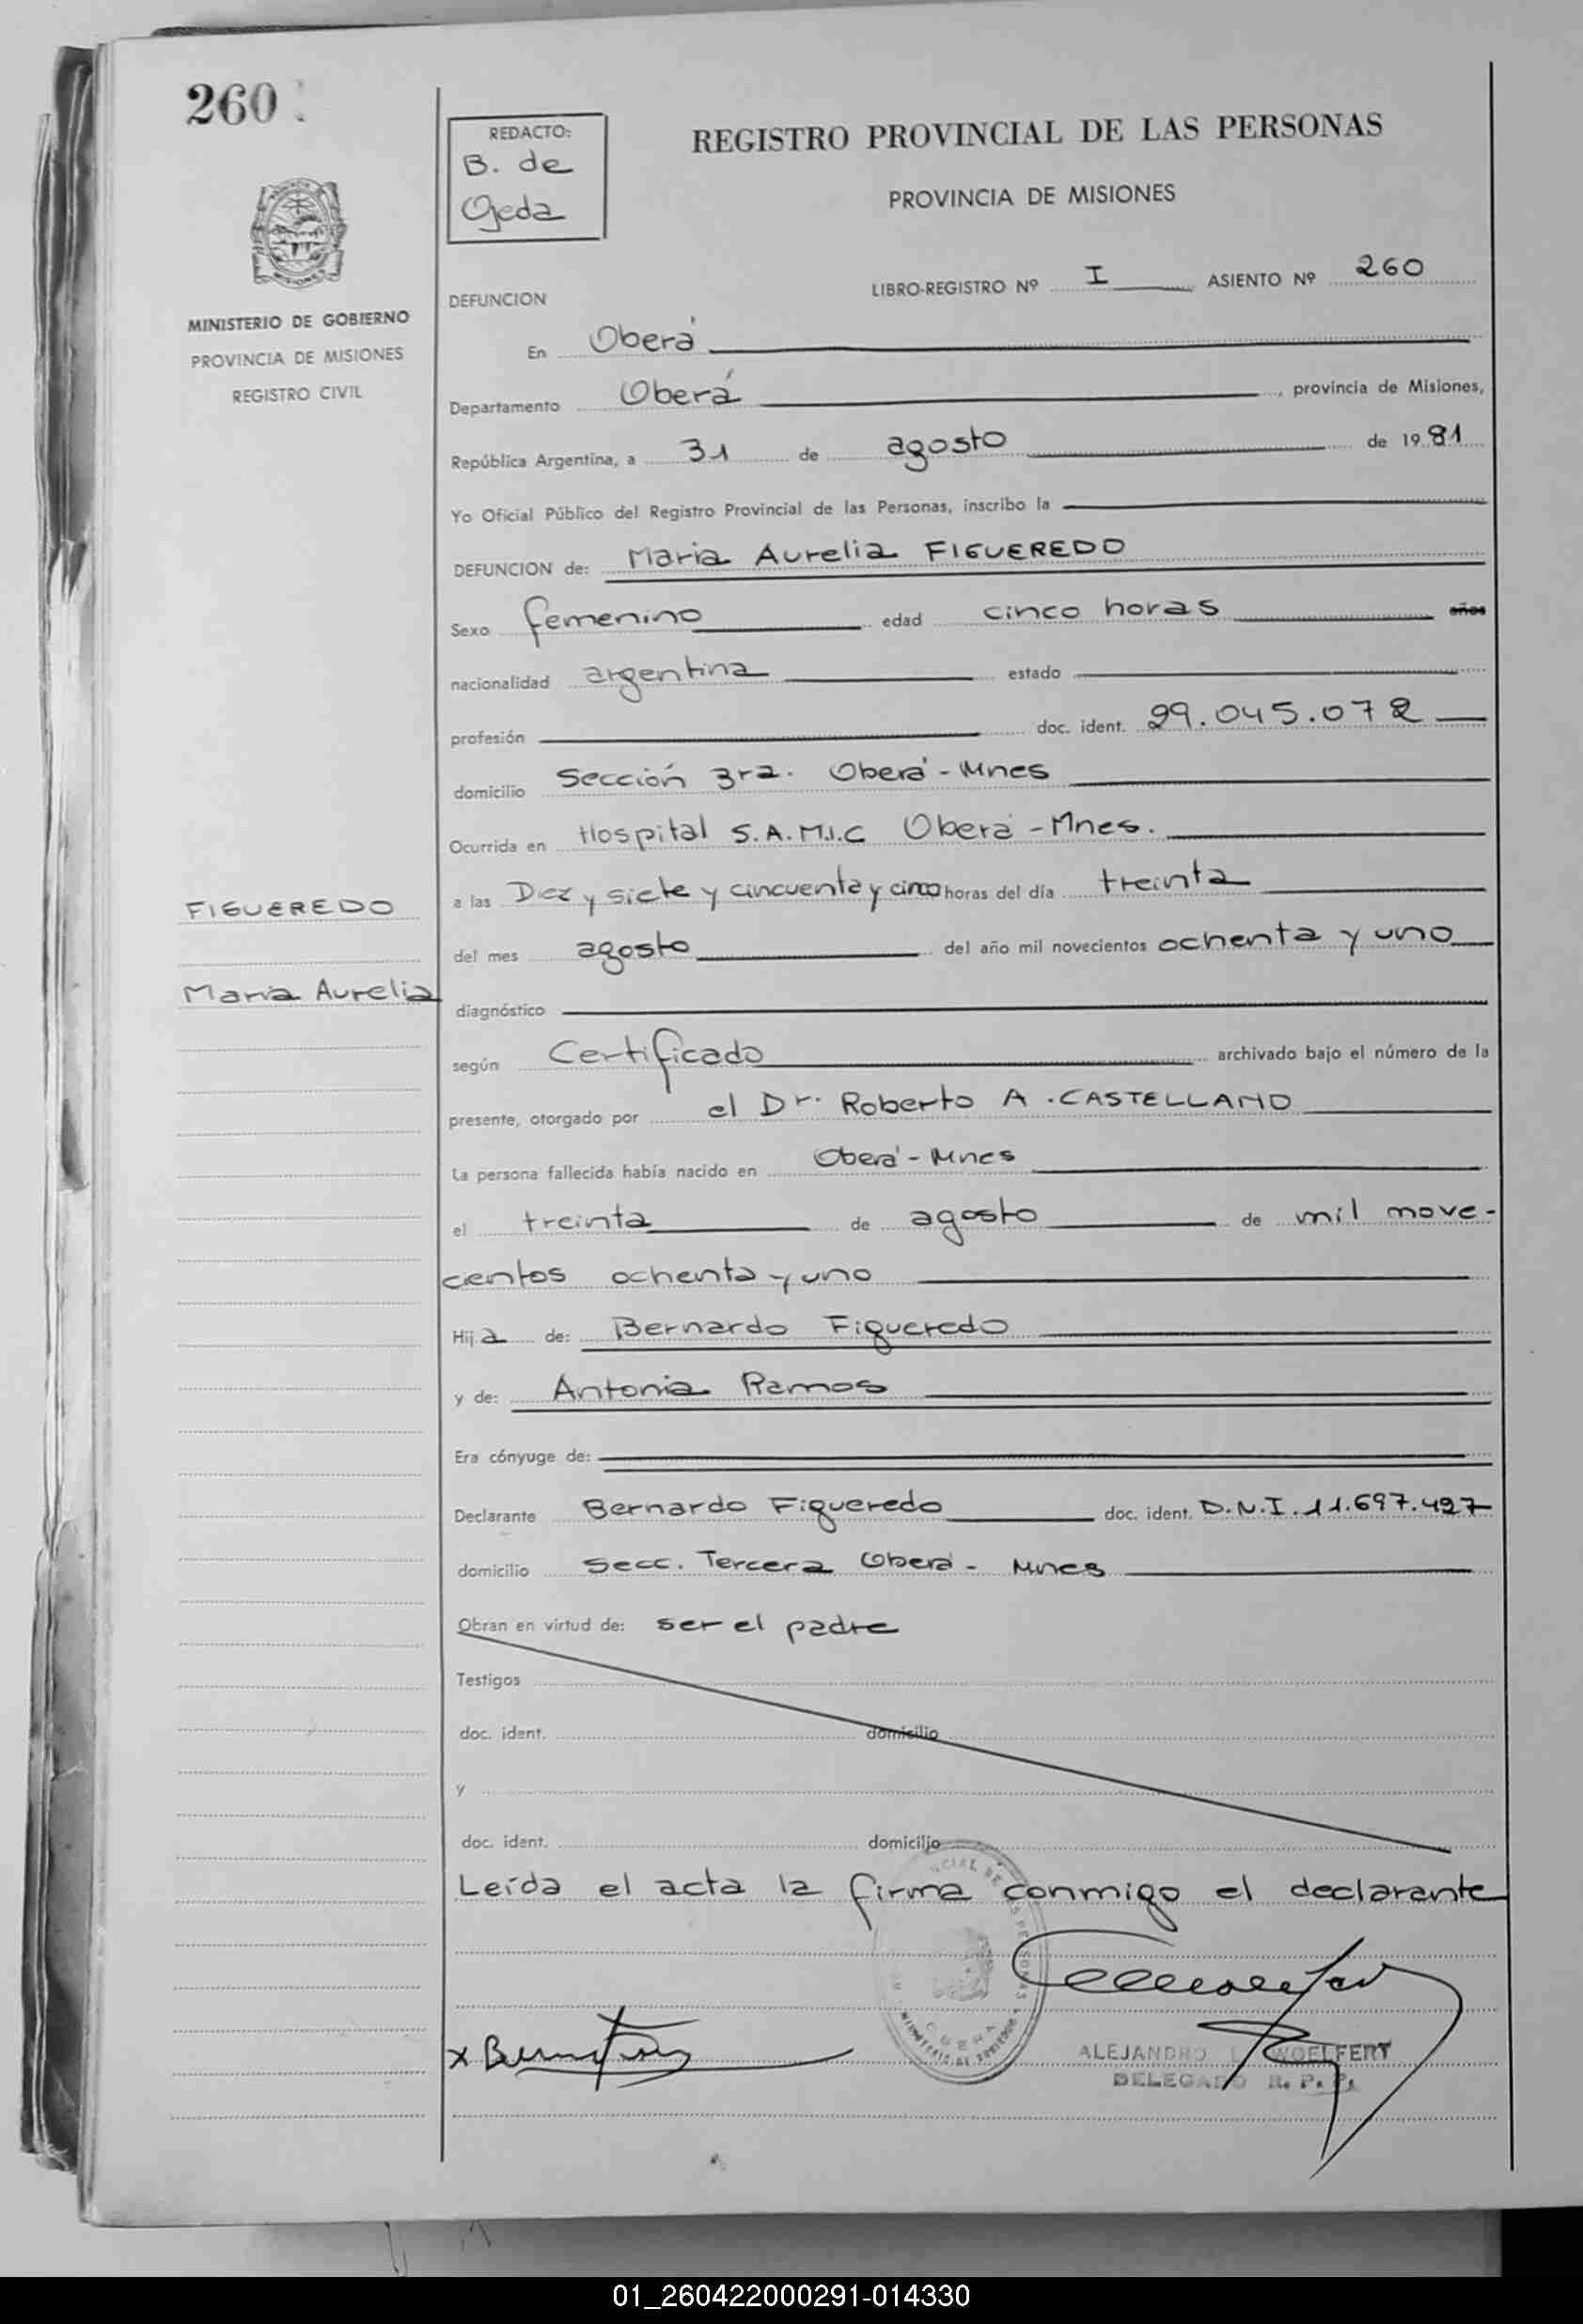 260
REDACTO:
B. de
Ojeda
REGISTRO PROVINCIAL DE LAS PERSONAS
PROVINCIA DE MISIONES
MINISTERIO DE GOBIERNO
PROVINCIA DE MISIONES
REGISTRO CIVIL
LIBRO-REGISTRO Nº I ASIENTO Nº 260
DEFUNCION
En Oberá
Departamento Oberá, provincia de Misiones,
República Argentina, a 31 de agosto de 1981
Yo Oficial Público del Registro Provincial de las Personas, inscribo la
DEFUNCION de: Maria Aurelia FIGUEREDO
Sexo femenino edad cinco horas años
nacionalidad argentina estado
profesión doc. ident. 29.045.072
domicilio Sección 3ra. Oberá - Mnes
Ocurrida en Hospital S.A.M.I.C Oberá - Mnes.
a las Diez y siete y cincuenta y cinco horas del día treinta
FIGUEREDO
del mes agosto del año mil novecientos ochenta y uno
Maria Aurelia
diagnóstico
según Certificado archivado bajo el número de la
presente, otorgado por el Dr. Roberto A. CASTELLANO
La persona fallecida había nacido en Oberá - Mnes
el treinta de agosto de mil move-
cientos ochenta y uno
Hija de: Bernardo Figueredo
y de: Antonia Ramos
Era cónyuge de:
Declarante Bernardo Figueredo doc. ident. D.N.I. 11.697.427
domicilio Secc. Tercera Oberá - Mnes
Obran en virtud de: ser el padre
Testigos
doc. ident. domicilio
y
doc. ident. domicilio
Leída el acta la firma conmigo el declarante
ALEJANDRO L. WOELFERT
DELEGADO R. P. P.
01_260422000291-014330